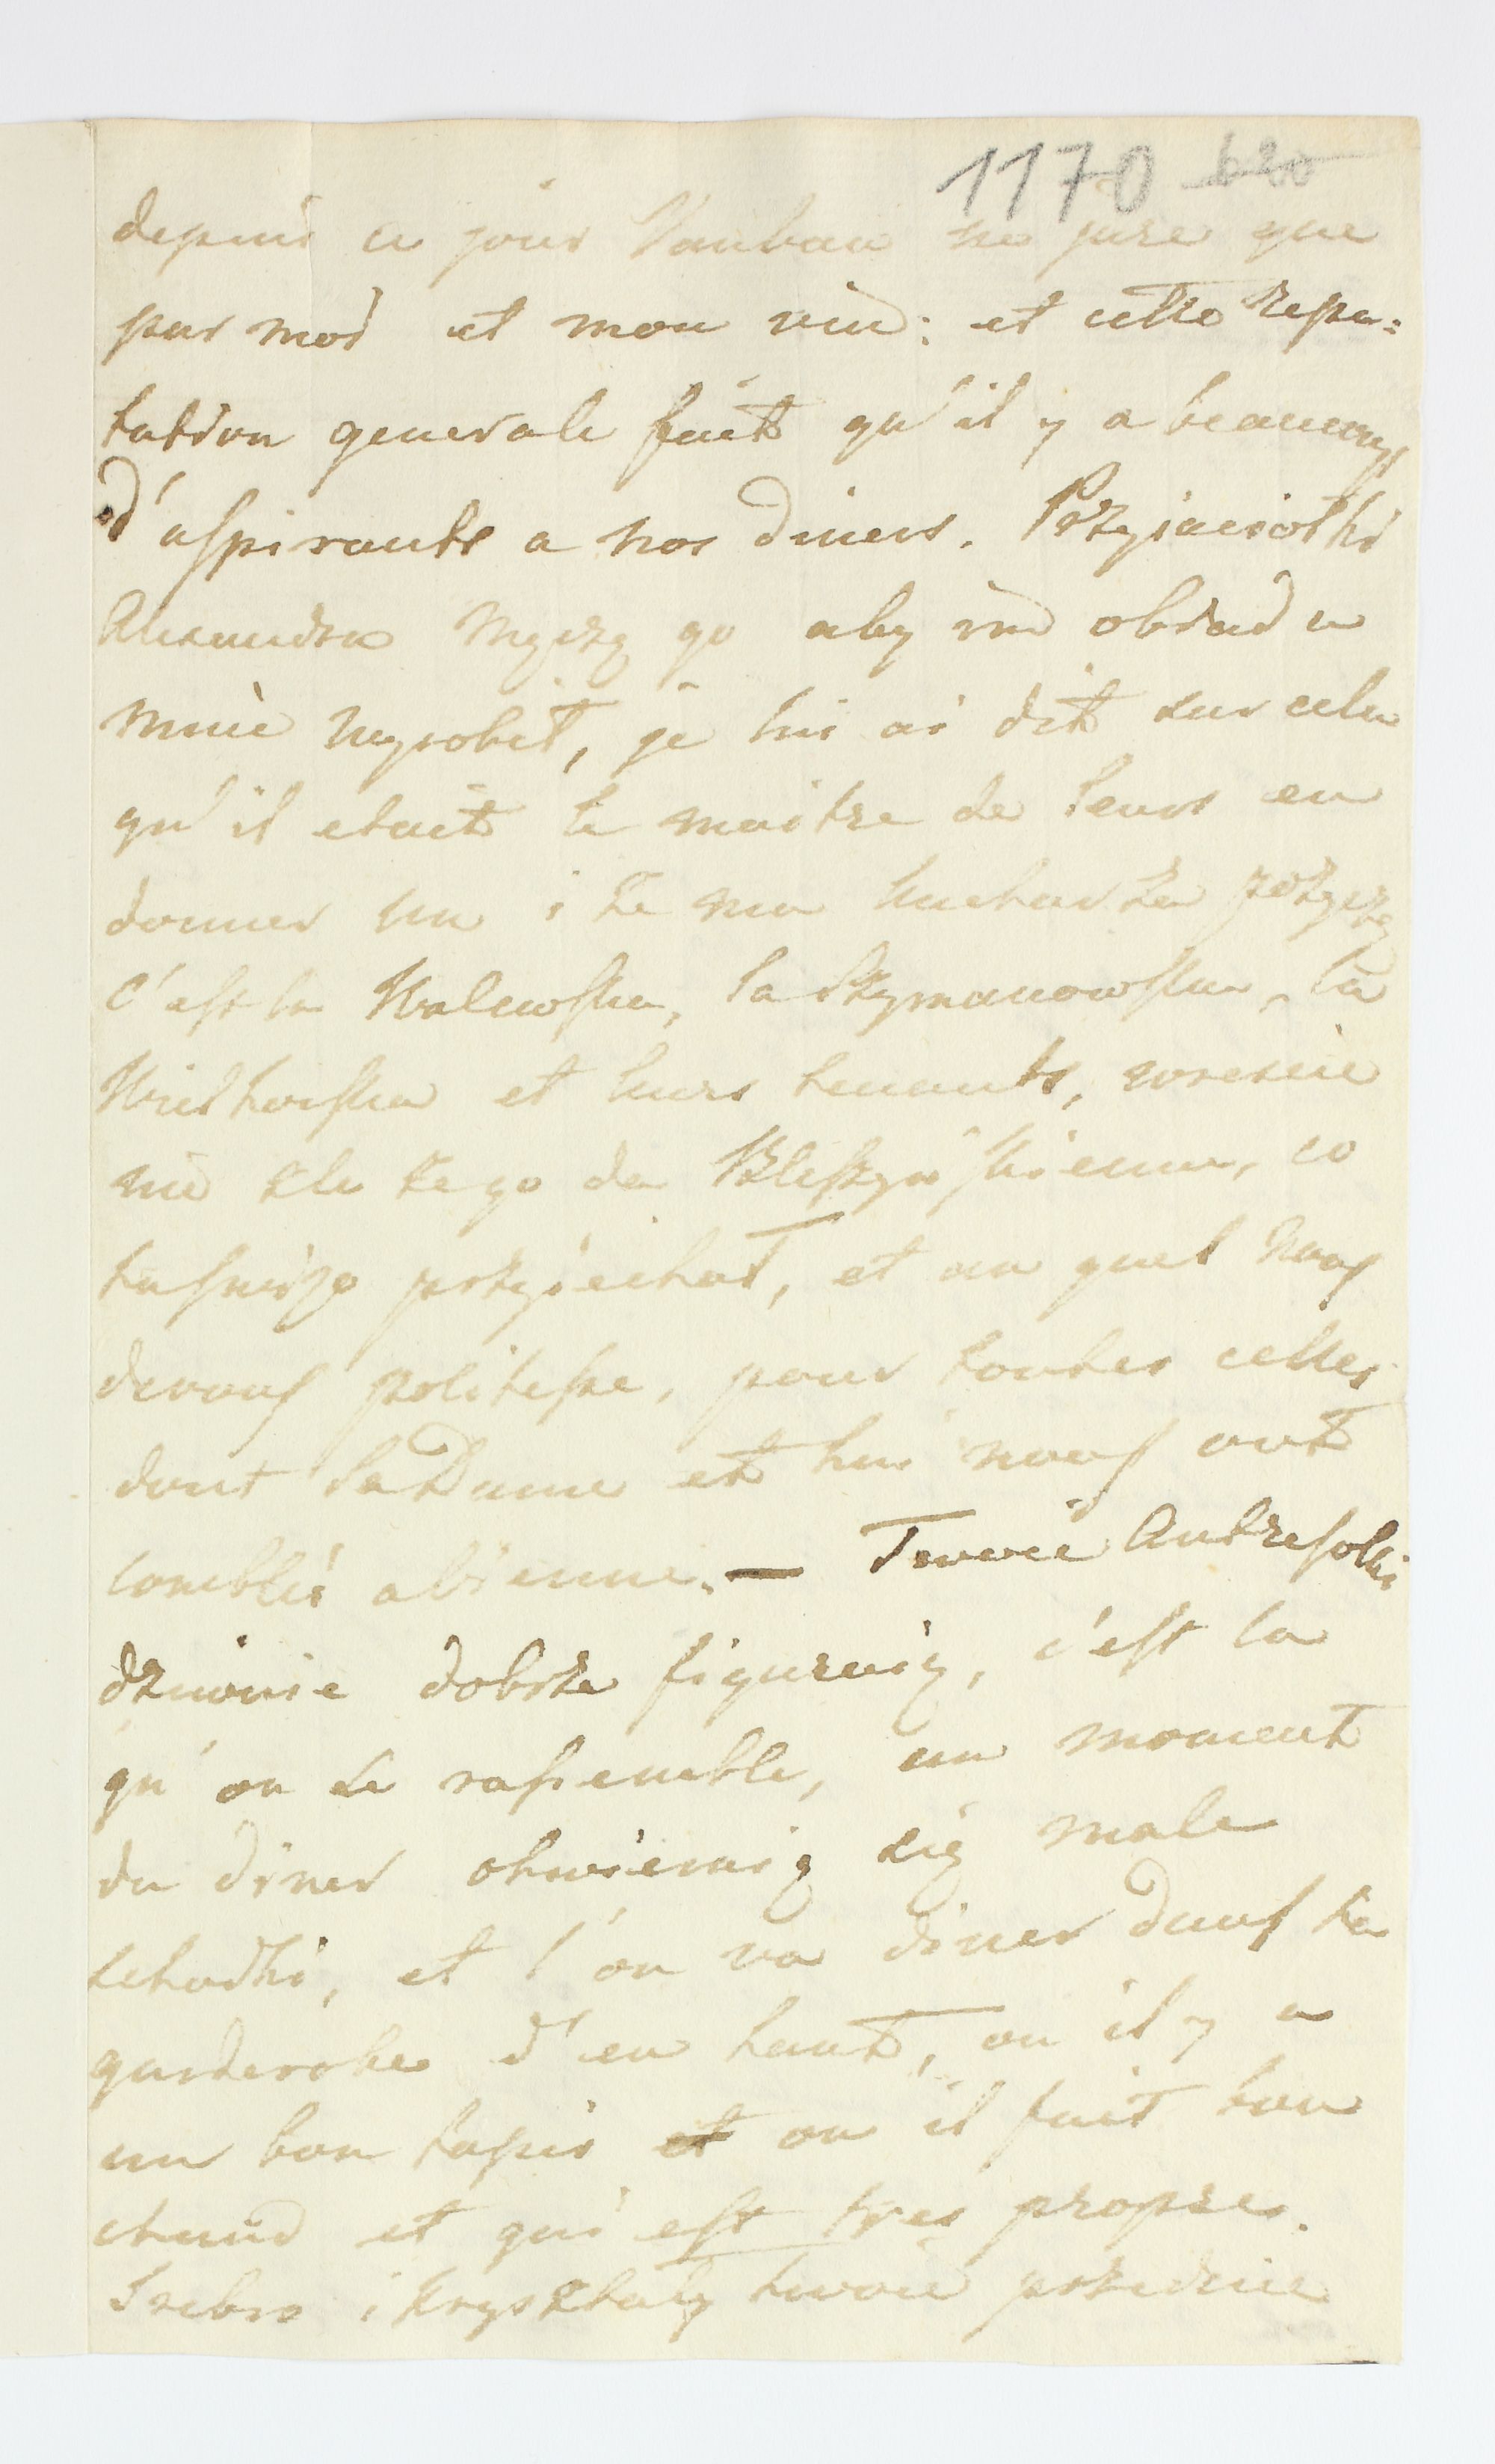 1170 620
depuis ce jour Vauban ne jure que
par moi et mon vin: et cette repu:
tation generale fait qu'il y a beaucoup
d'aspirants a nos diners. Przyjaciołki
Alexandra męczą go aby im obiad u
mnie wyrobił, je lui ai dit sur cela
qu'il etait le maitre de leurs en
donner un i że ma kucharza pożyczę
c'est la Walewska, la Szymanowska, la
Wielhorska et leurs tenants,
nie dla tego da co
przyiechał, et au quel nous
devons politesse, pour toutes celles
dont sa Dame et lui nous ont
comblés a Vienne. — Twoie Antresolki
dziwnie dobrze figuruią, c'est la
qu'on se rassemble, au moment
du diner otwieraią się małe
schodki, et l'on va diner dans ta
garderobe d'en haut, ou il y a
un bon tapis et ou il fait bon
chaud et qui est tres propre.
Srebro i kryształy twoie przednie